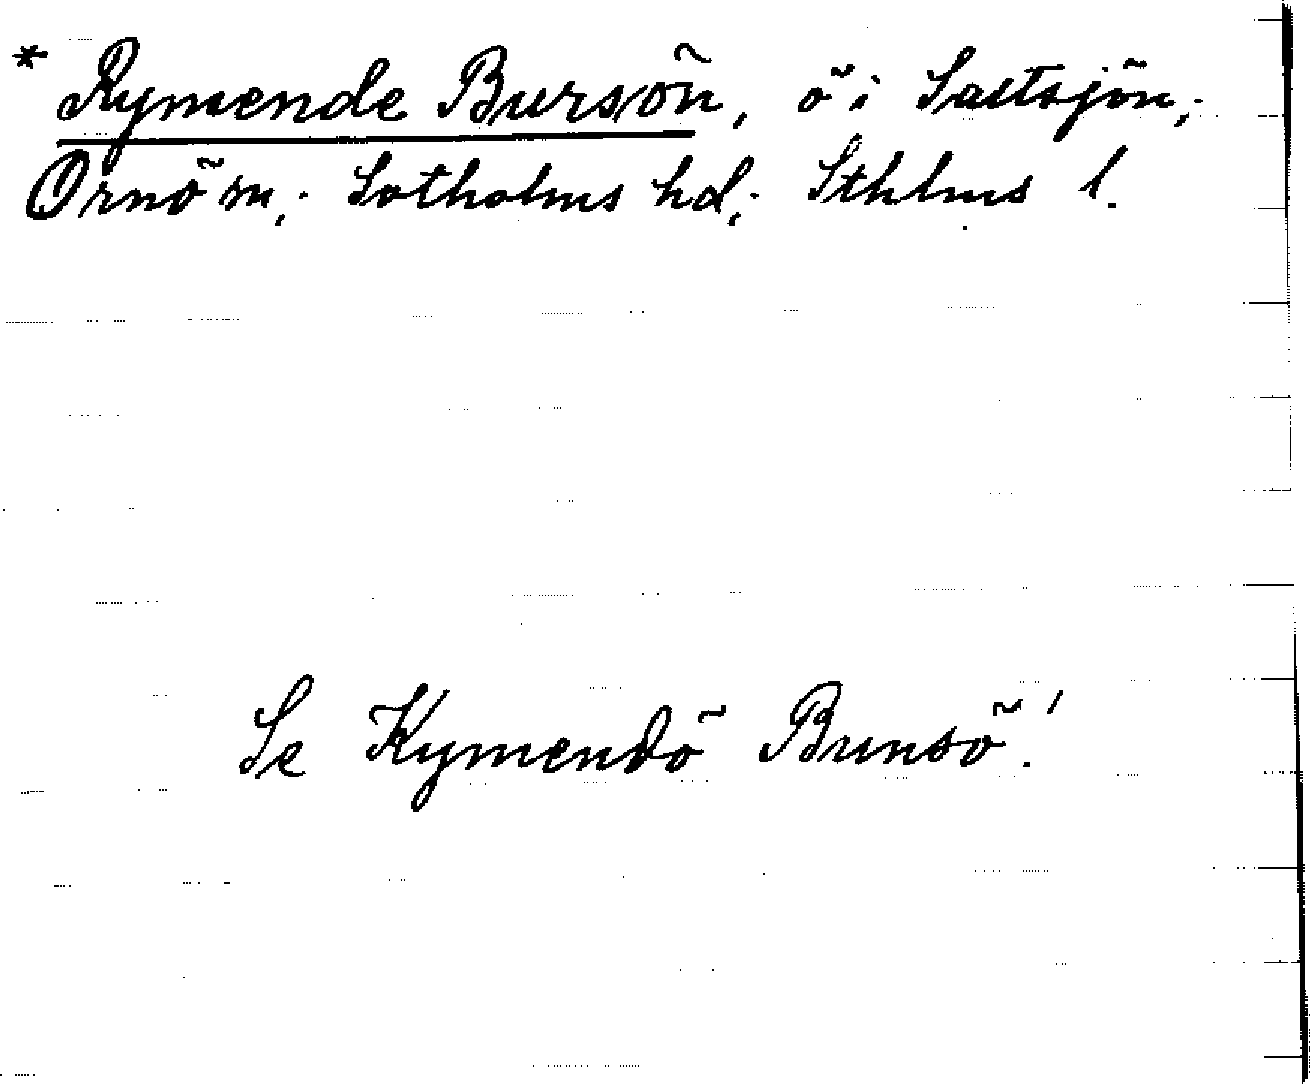 * Rymende Bursön, ö i Saltsjön;
Ornö sn; Sotholms hd; Sthlms l.
Se Kymendö Bunsö!